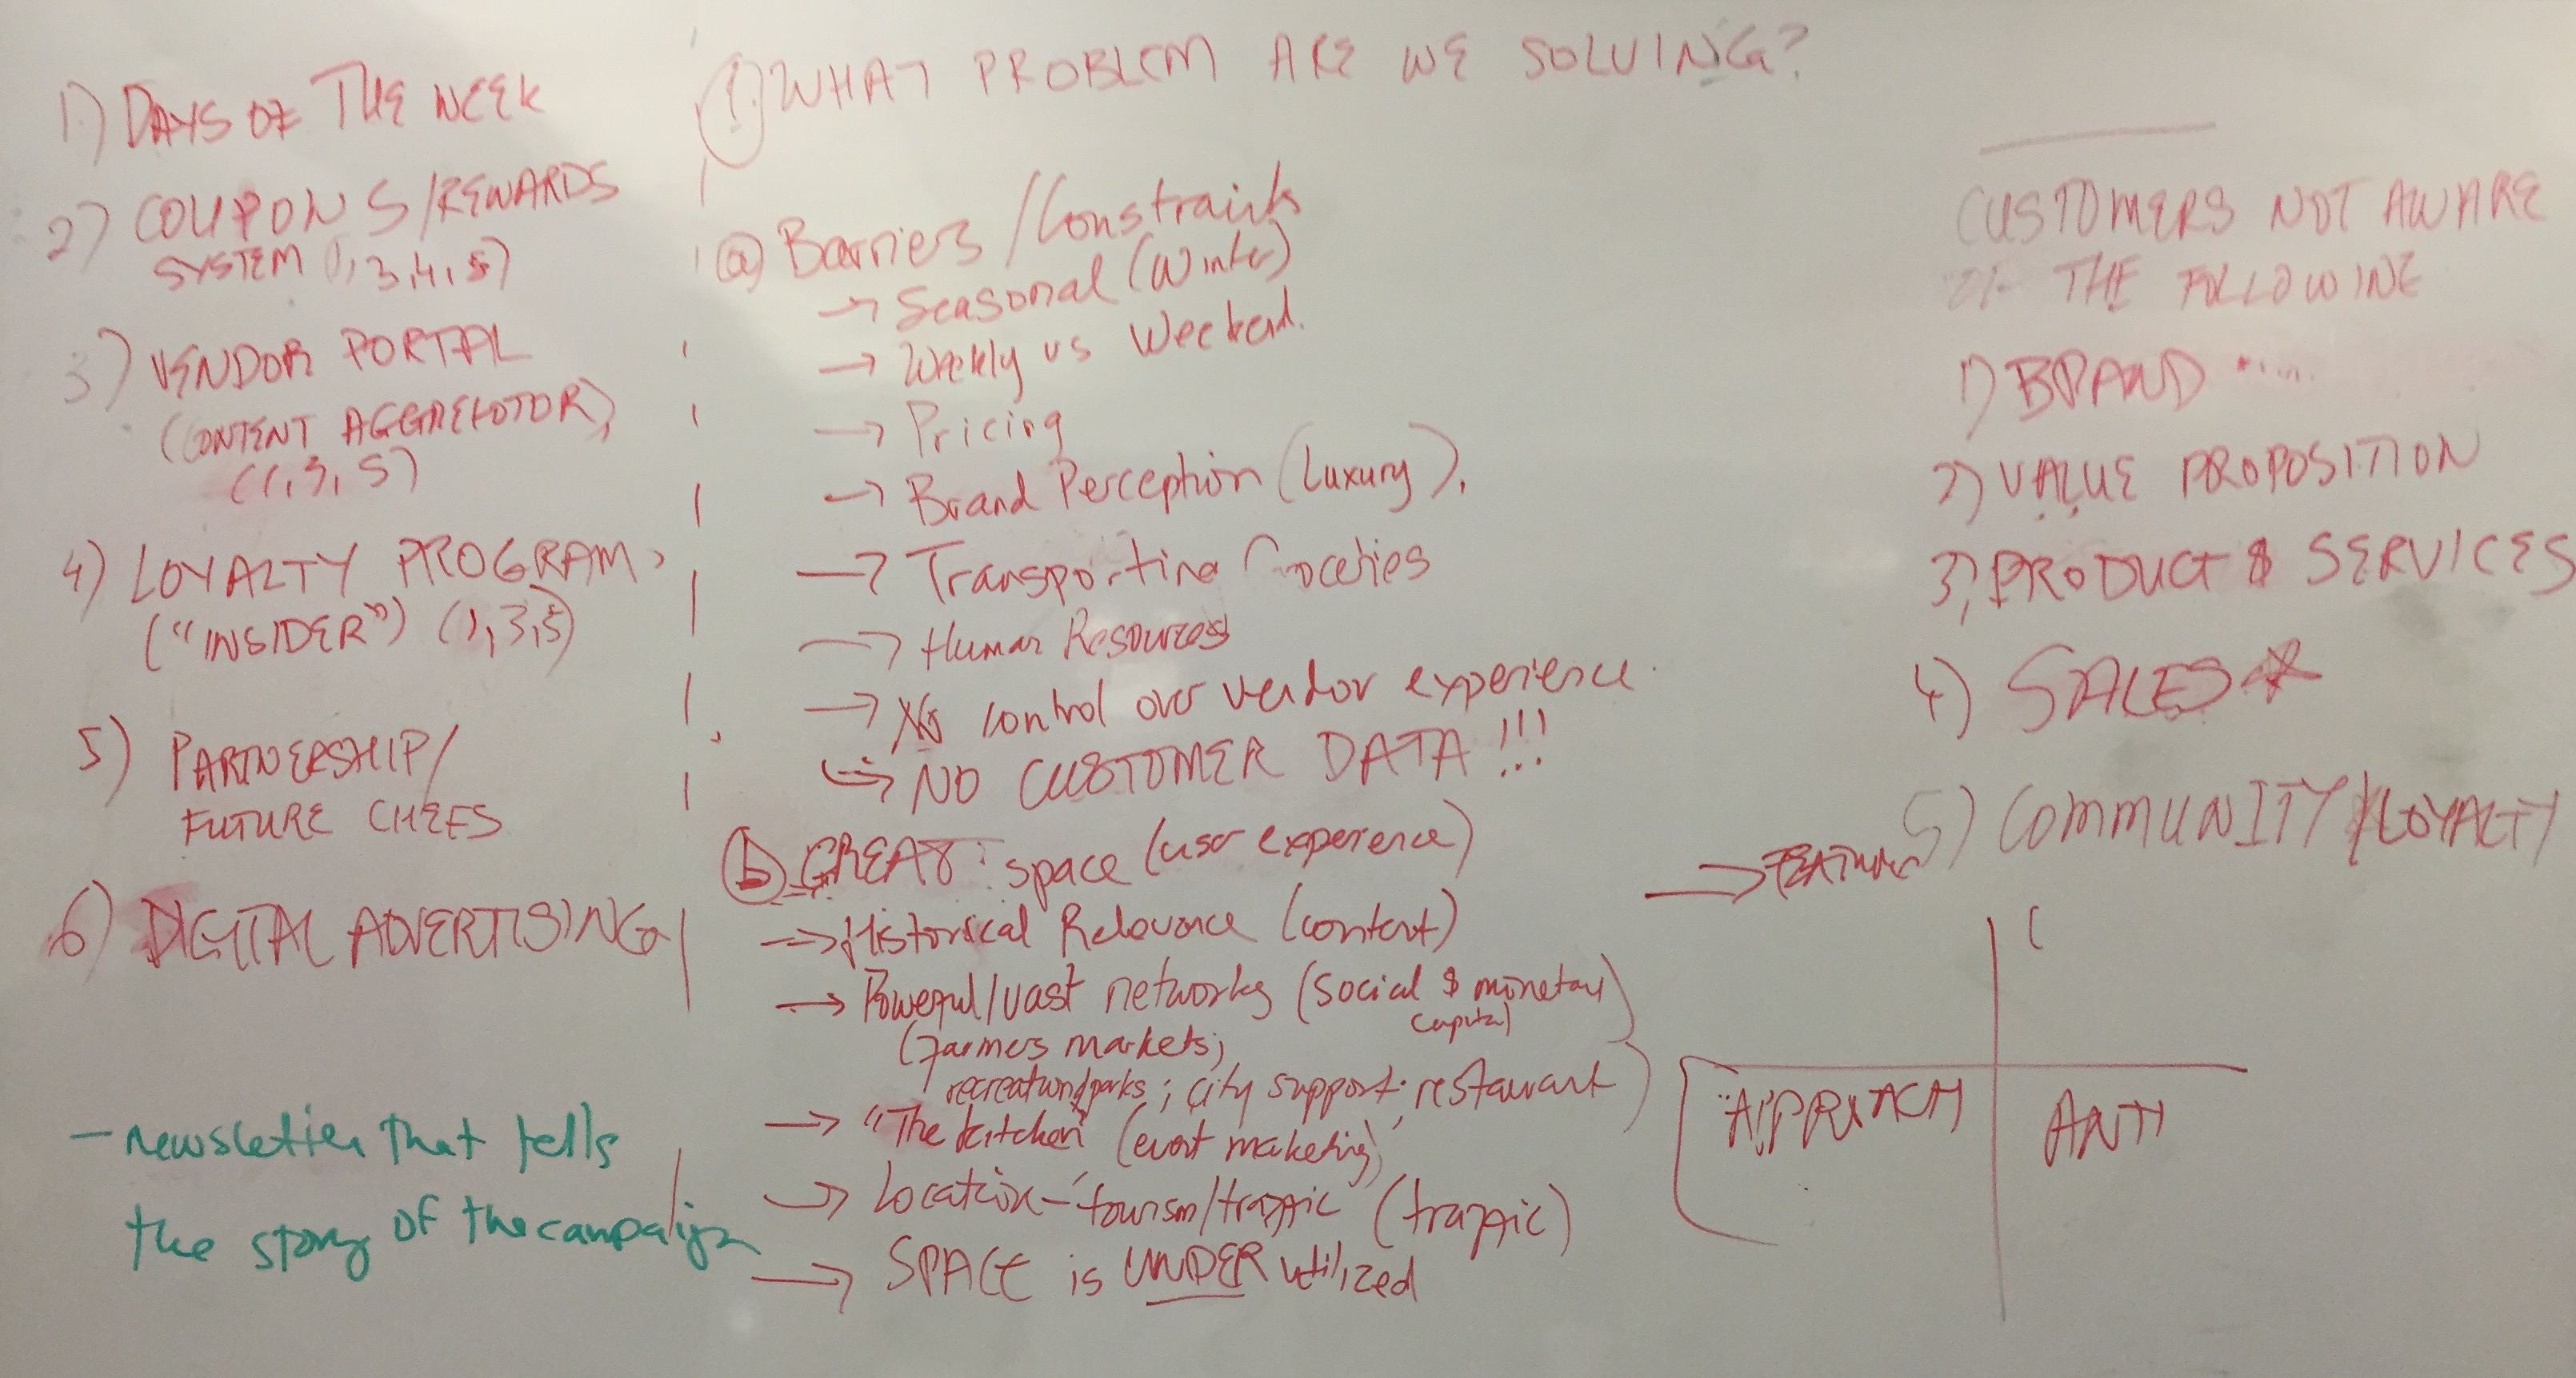 1) DAYS OF THE WEEK
2) COUPONS/REWARDS
SYSTEM (1,3,4,5)
3) VENDOR PORTAL
(CONTENT AGGREGATOR)
(1,3,5)
4) LOYALTY PROGRAM
("INSIDER") (1,3,5)
5) PARTNERSHIP/
FUTURE CHEFS
6) DIGITAL ADVERTISING
- newsletter that tells
the story of the campaign
1. WHAT PROBLEM ARE WE SOLVING?
a) Barriers/Constraints
→ Seasonal (Winter)
→ Weekly vs Weekend.
→ Pricing
→ Brand Perception (Luxury).
→ Transporting Groceries
→ Human Resources
→ No control over vendor experience
→ NO CUSTOMER DATA!!!
b) GREAT: space (user experience)
→ Historical Relevance (content)
→ Powerful/vast networks (social & monetary
capital)
(farmers markets;
recreation/parks; city support; restaurant)
→ "The kitchen" (event marketing)
→ Location - tourism/traffic (traffic)
→ SPACE is UNDER utilized
CUSTOMERS NOT AWARE
OF THE FOLLOWING
1) BRAND
2) VALUE PROPOSITION
3) PRODUCT & SERVICES
4) SALES *
5) COMMUNITY/LOYALTY
→
APPROACH
ANTI